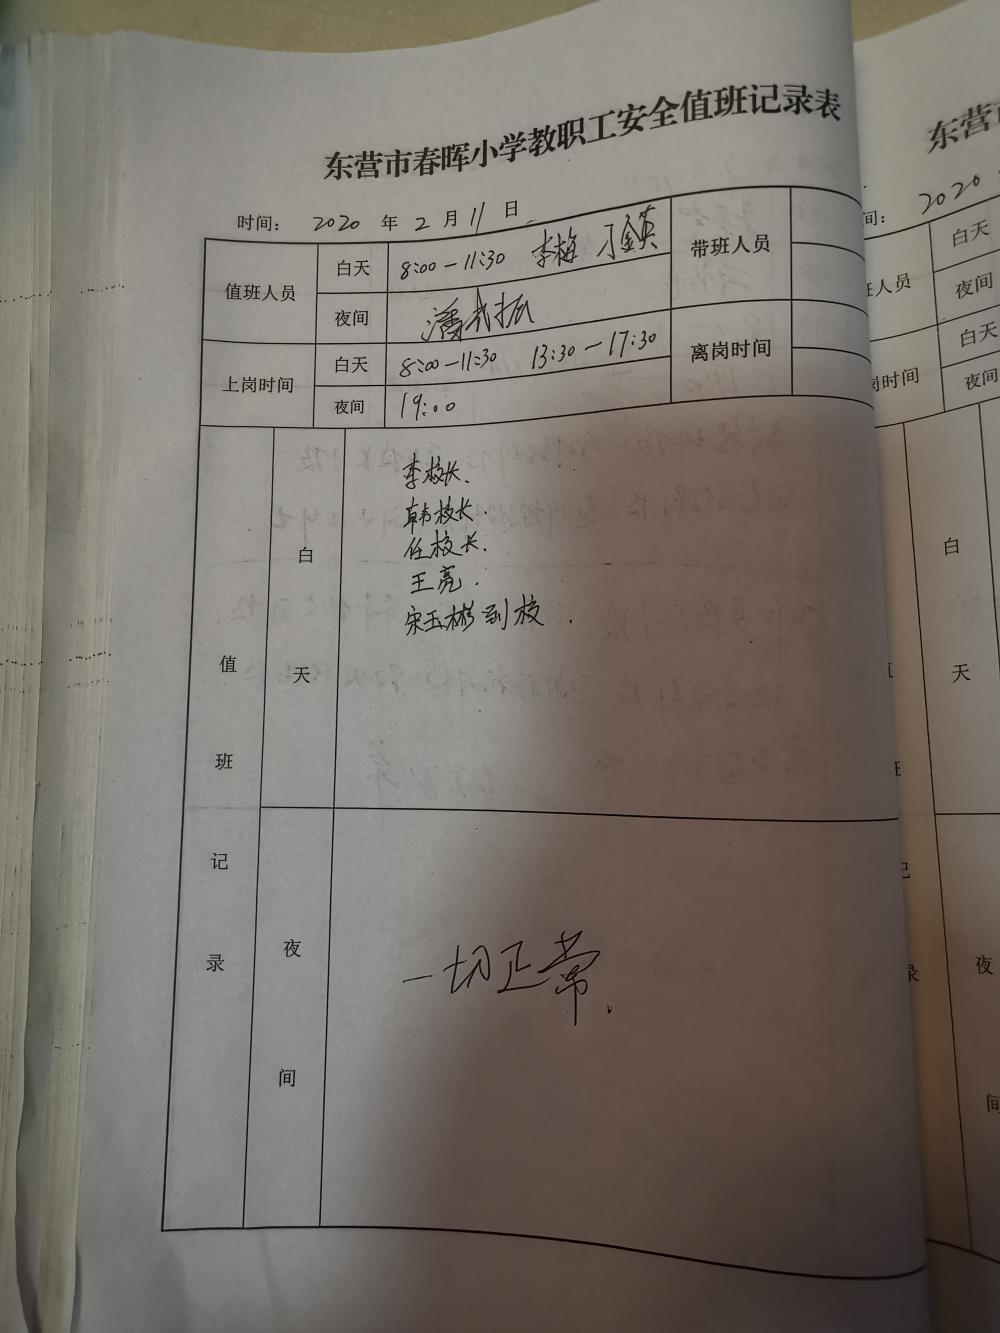 东营市春晖小学教职工安全值班记录表
时间： 2020 年 2 月 11 日
值班人员 白天 8:00—11:30 李梅 刁金英 带班人员
夜间 潘武振
上岗时间 白天 8:00—11:30 13:30—17:30 离岗时间
夜间 19:00
值班记录
白天
李校长、
韩校长、
任校长、
王亮、
宋玉彬到校．
夜间
一切正常．
东营
间： 2020
人员 白天
夜间
岗时间 白天
夜间
白天
夜间